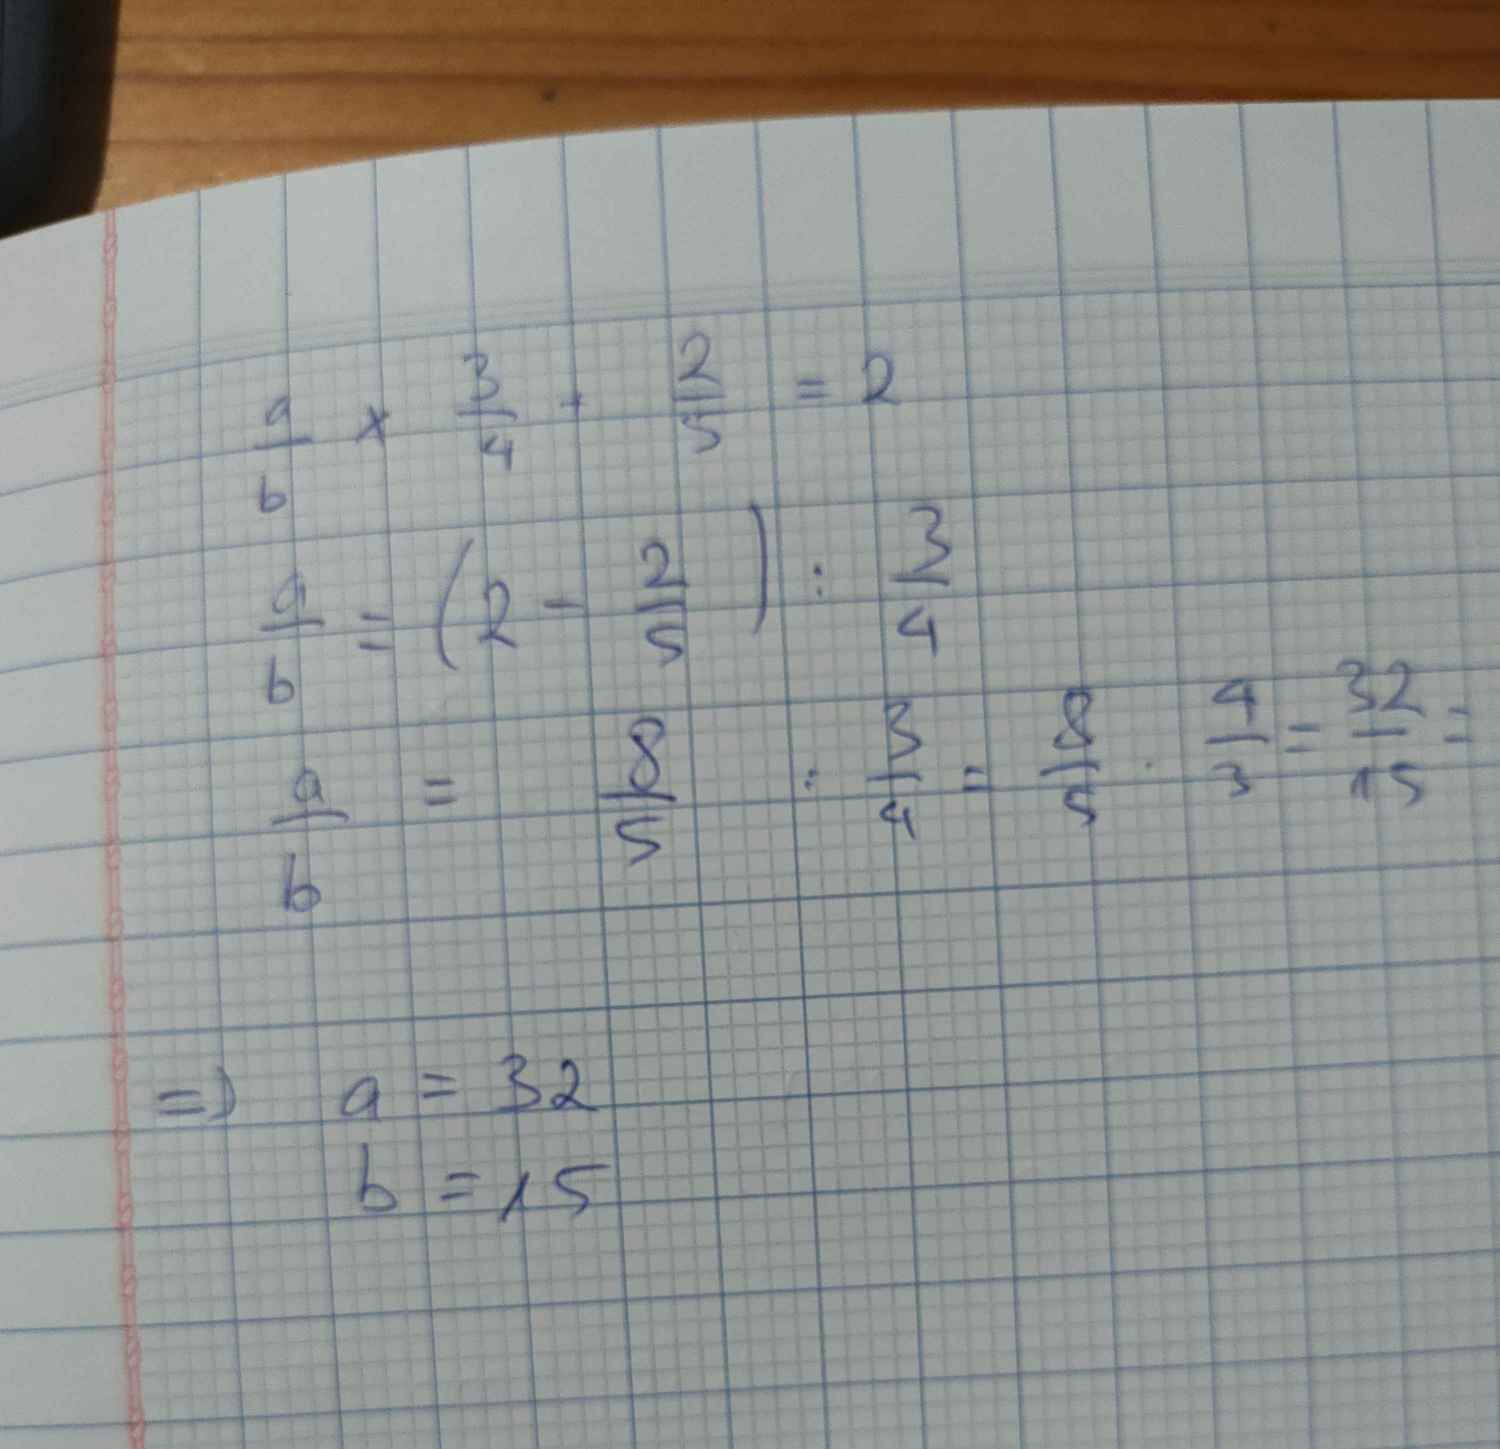 a/b × 3/4 + 2/5 = 2
a/b = (2 - 2/5) : 3/4
a/b = 8/5 : 3/4 = 8/5 · 4/3 = 32/15 =
=> a = 32
b = 15